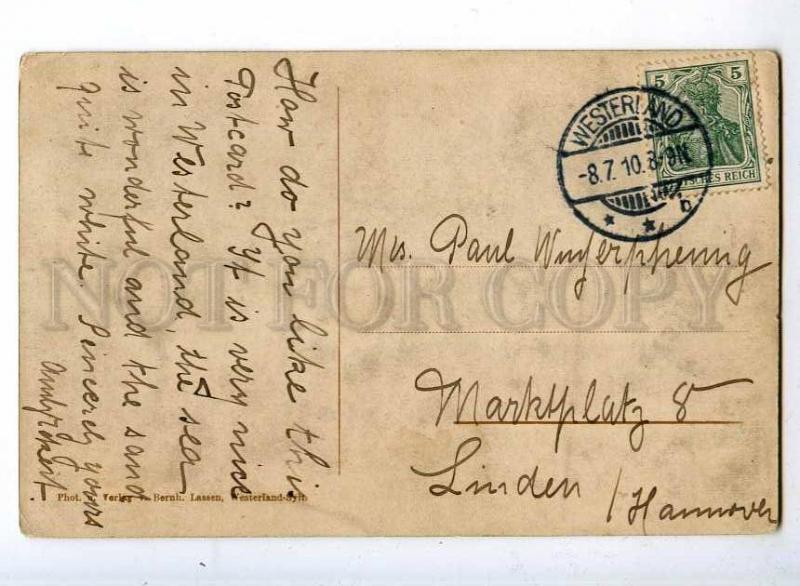 How do you like this
Postcard? It is very nice
in Westerland, the sea
is wonderful and the sand
quite white. Sincerely yours
5 5
DEUTSCHES REICH
WESTERLAND
-8.7.10.8-9N.
b
Mrs. Paul
Marktplatz 8
Linden /Hannover
Phot. u. Verlag v. Bernh. Lassen, Westerland-Sylt.
NOT FOR COPY